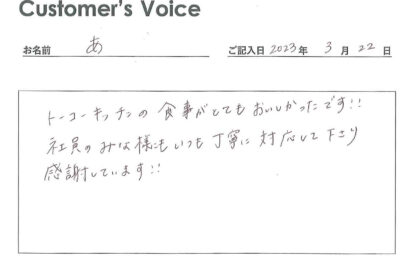 Customer's Voice
お名前 あ ご記入日 2023 年 3 月 22 日
トーコーキッチンの食事がとてもおいしかったです!!
社員のみな様にもいつも丁寧に対応して下さり
感謝しています!!